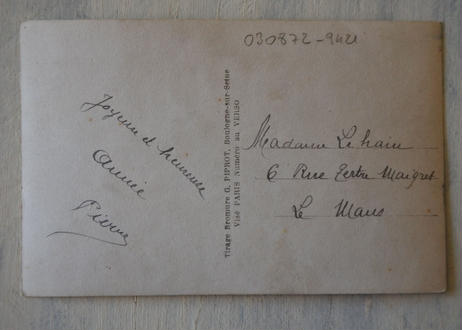 030872-9421
Joyeuse et heureuse
Année
Pierre
Tirage Bromure G. PIPROT, Boulogne-sur-Seine
Visé PARIS Numéro au VERSO
Madame Lehain
6 Rue Tertre Maigret
Le Mans